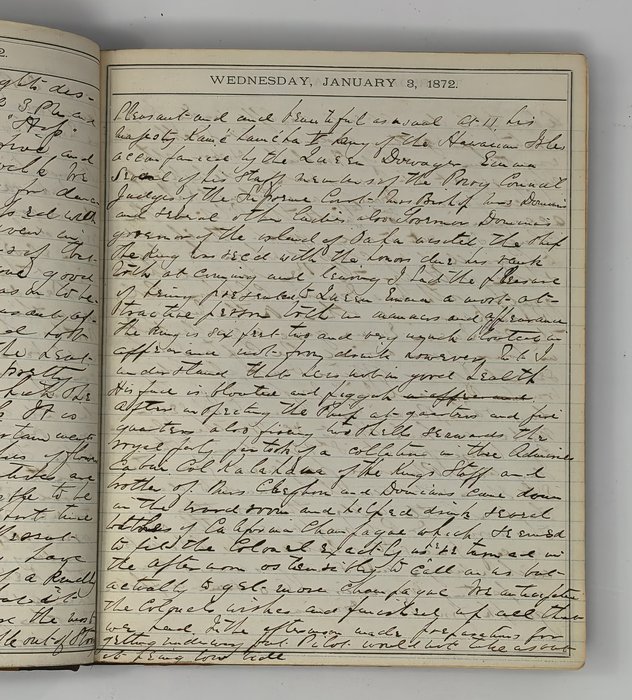 2.
ghts des-
"Hop"
and
be
for
ised with
even in
is of the
good
as on to be
of
both
the
pretty
which the
It is
are
to be
short time
have
of a
the most
out of
WEDNESDAY, JANUARY 3, 1872.
Pleasant and and beautiful as usual At 11, his
majesty Kamehameha the king of the Hawaiian Isles
accompanied by the Queen Dowager Emma
Several of his Staff members of the Privy Council
Judges of the Supreme Court Mrs Bishop Mrs Dominis
and several other ladies also Governor Dominis
governor of the island of Oahu visited the Ship
The King received with the honors due his rank
both at coming and leaving I had the pleasure
of being presented to Queen Emma a most at-
tractive person both in manners and appearance
The King is six feet two and very much bloated in
appearance not from drink however I
understand that he is not in good health
His face is bloated and
After inspecting the Ship at quarters and fire
quarters also firing two shells seawards the
royal party partook of a collation in the Admirals
Cabin Col Kalakaua of the Kings Staff and
brother of Mrs and Dominis came down
in the wardroom and helped drink several
bottles of California Champagne which seemed
to the Colonel exactly as he returned in
the afternoon ostensibly to call on us but
actually to get more champagne We anticipated
the Colonels wishes and furnished up all that
was In the afternoon made preparations for
getting underway but Pilot would not take us out
it being low tide